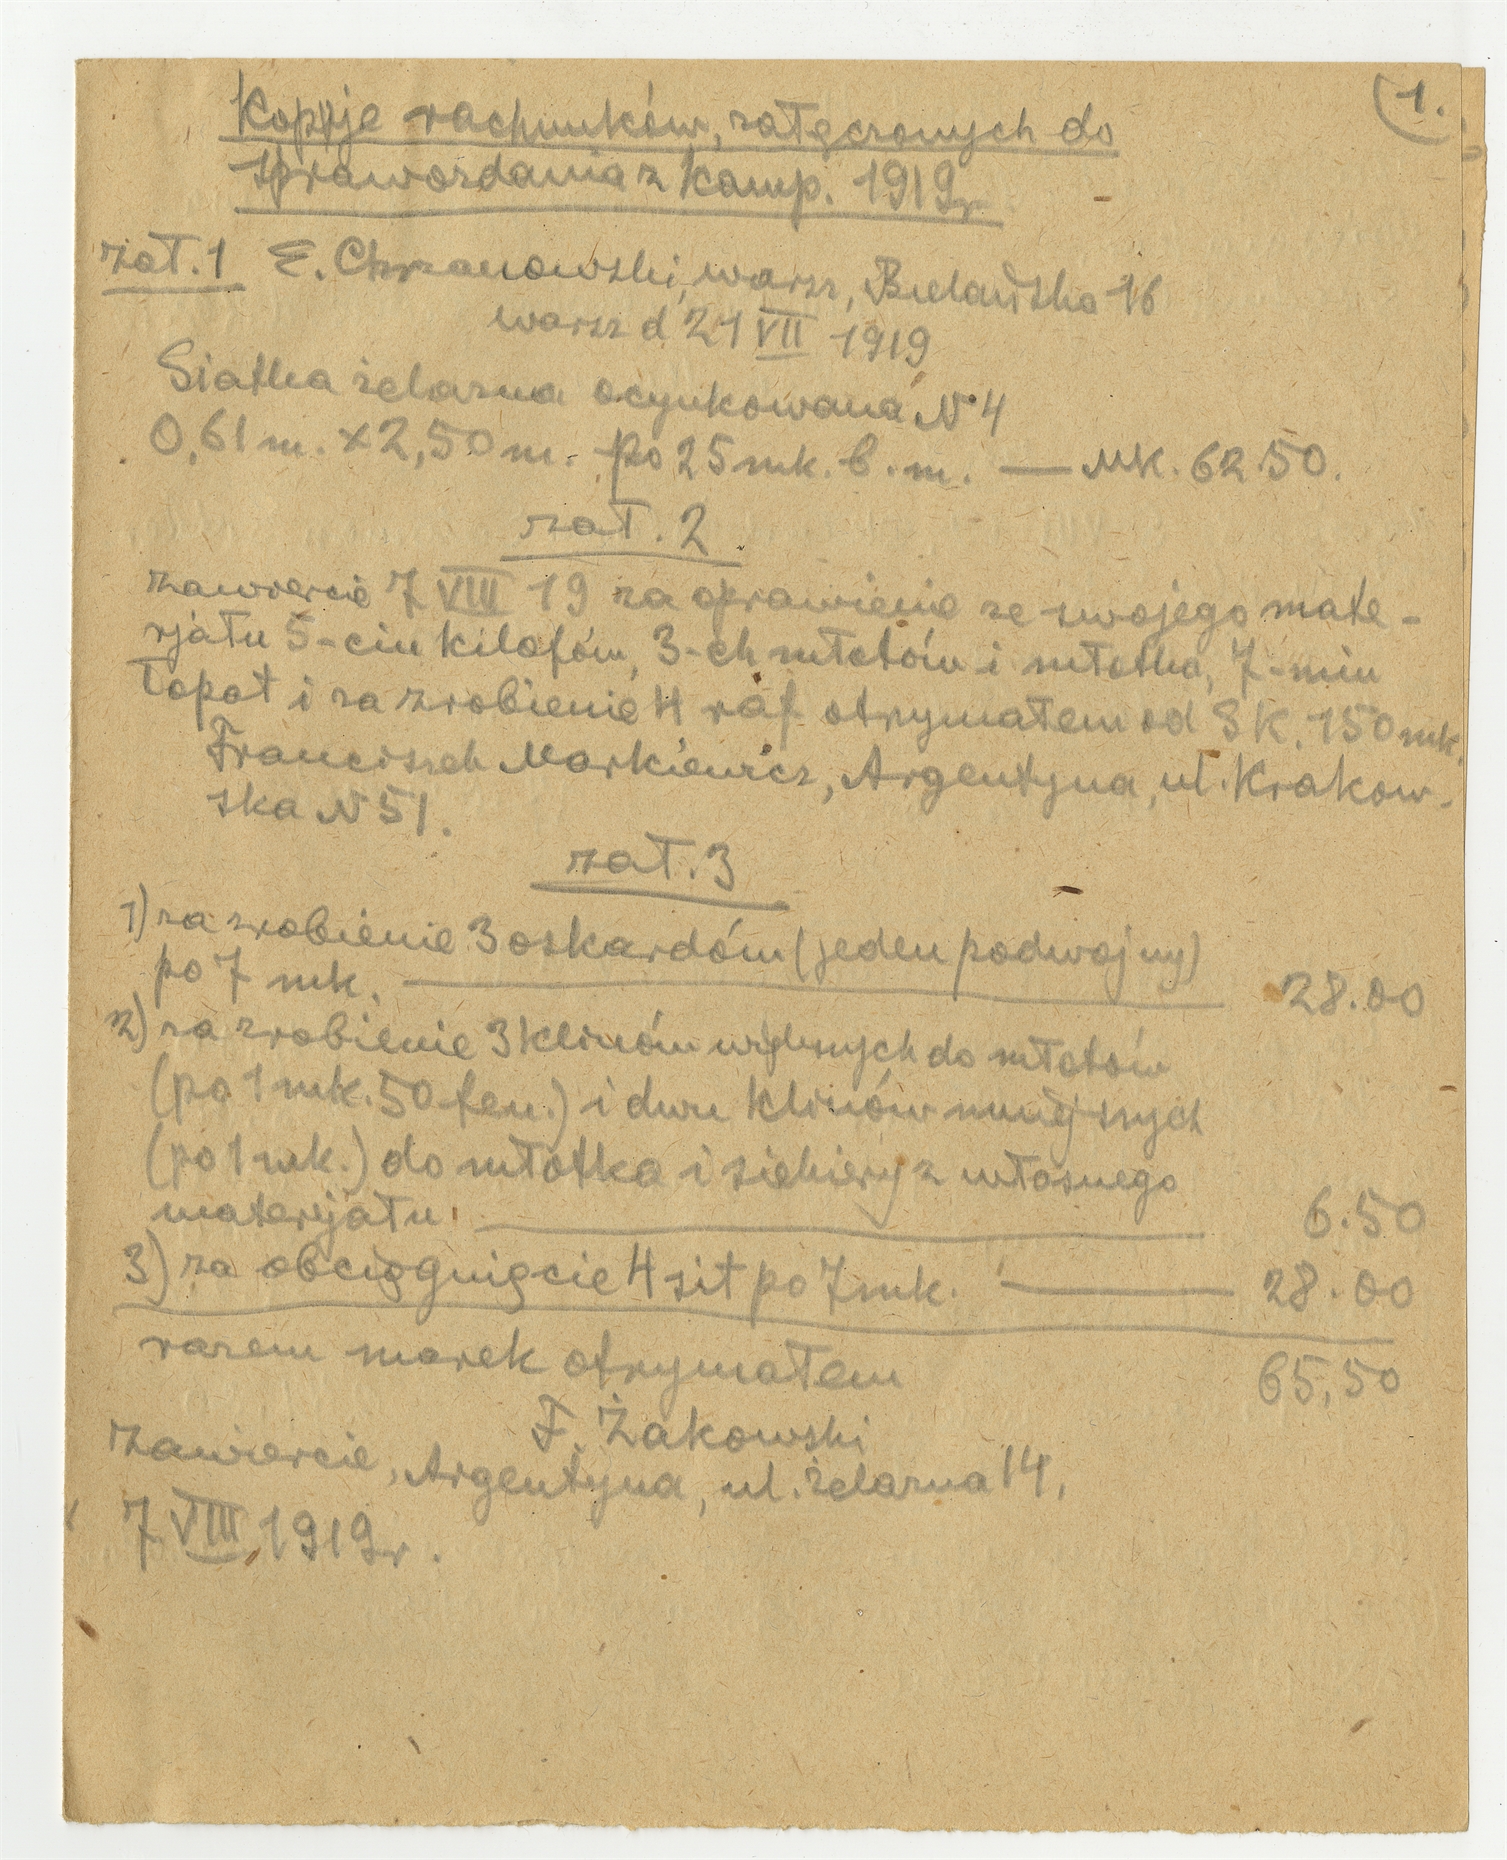 1.
Kopyje rachunków, załączonych do
sprawozdania z kamp. 1919 r
zał. 1 E. Chrzanowski, warsz, Bielańska 16
warsz d 21 VII 1919
Siatka żelazna ocynkowana N 4
0,61 m. x 2,50 m. po 25 mk. b. m. — MK. 62.50.
zał. 2
Zawiercie 7 VIII 19 za oprawienie ze swojego mate-
rjału 5-ciu kilofów, 3-ch młotów i młotka, 7-miu
łopat i za zrobienie 4 raf otrzymałem od SK. 150 mk.
Franciszek Markiewicz, Argentyna, ul. Krakow-
ska N 51.
zał. 3
1) za zrobienie 3 oskardów (jeden podwójny)
po 7 mk. — 28.00
2) za zrobienie 3 klinów do młotów
(po 1 mk. 50 fen.) i dwu klinów mniejszych
(po 1 mk.) do młotka i siekiery z własnego
materjału — 6.50
3) za obciągnięcie 4 sit po 7 mk. — 28.00
razem marek otrzymałem 65,50
F. Żakowski
Zawiercie, Argentyna, ul. Żelazna 14,
7 VIII 1919 r.